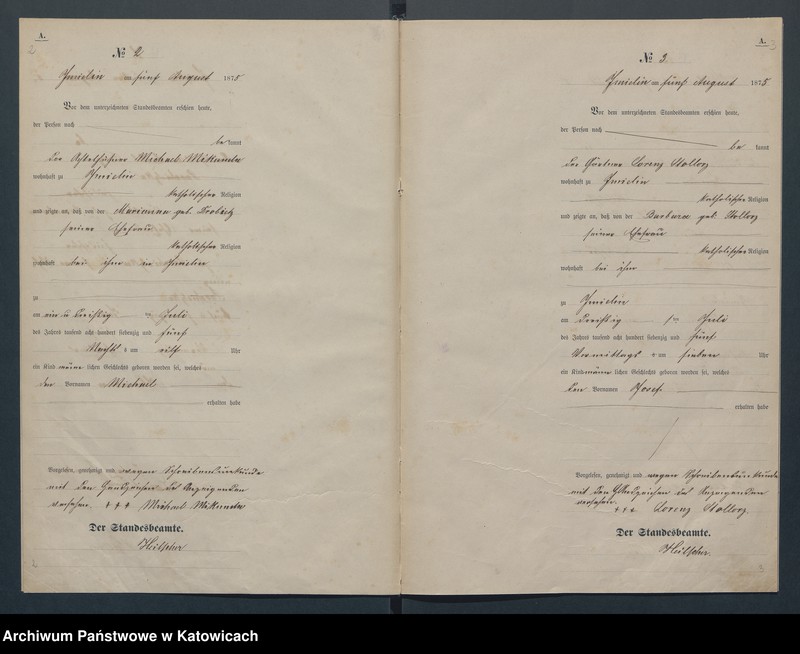 A.
2
№ 2.
Imielin am fünf August 1875
Vor dem unterzeichneten Standesbeamten erschien heute,
der Person nach
be kannt
der Michael Mikunda
wohnhaft zu Imielin
katholischer Religion
und zeigte an, daß von der Marianna geb.
seiner Ehefrau
katholischer Religion
wohnhaft bei ihm in Imielin
zu
am ein u. dreißig ten Juli
des Jahres tausend acht hundert siebenzig und fünf
Nachts um elf Uhr
ein Kind männlichen Geschlechts geboren worden sei, welches
den Vornamen Michael
erhalten habe
Vorgelesen, genehmigt und wegen Schreibensunkunde
mit den Handzeichen des Anzeigenden
versehen. +++ Michael Mikunda
Der Standesbeamte.
2
A.
3
№ 3.
Imielin am fünf August 1875
Vor dem unterzeichneten Standesbeamten erschien heute,
der Person nach
be kannt
der Gärtner Lorenz Stolorz
wohnhaft zu Imielin
katholischer Religion
und zeigte an, daß von der Barbara geb. Stolorz
seiner Ehefrau
katholischer Religion
wohnhaft bei ihm
zu Imielin
am dreißig ten Juli
des Jahres tausend acht hundert siebenzig und fünf
Vormittags um sieben Uhr
ein Kind männlichen Geschlechts geboren worden sei, welches
den Vornamen Josef
erhalten habe
Vorgelesen, genehmigt und wegen Schreibensunkunde
mit den Handzeichen des Anzeigenden
versehen +++ Lorenz Stolorz.
Der Standesbeamte.
3
Archiwum Państwowe w Katowicach